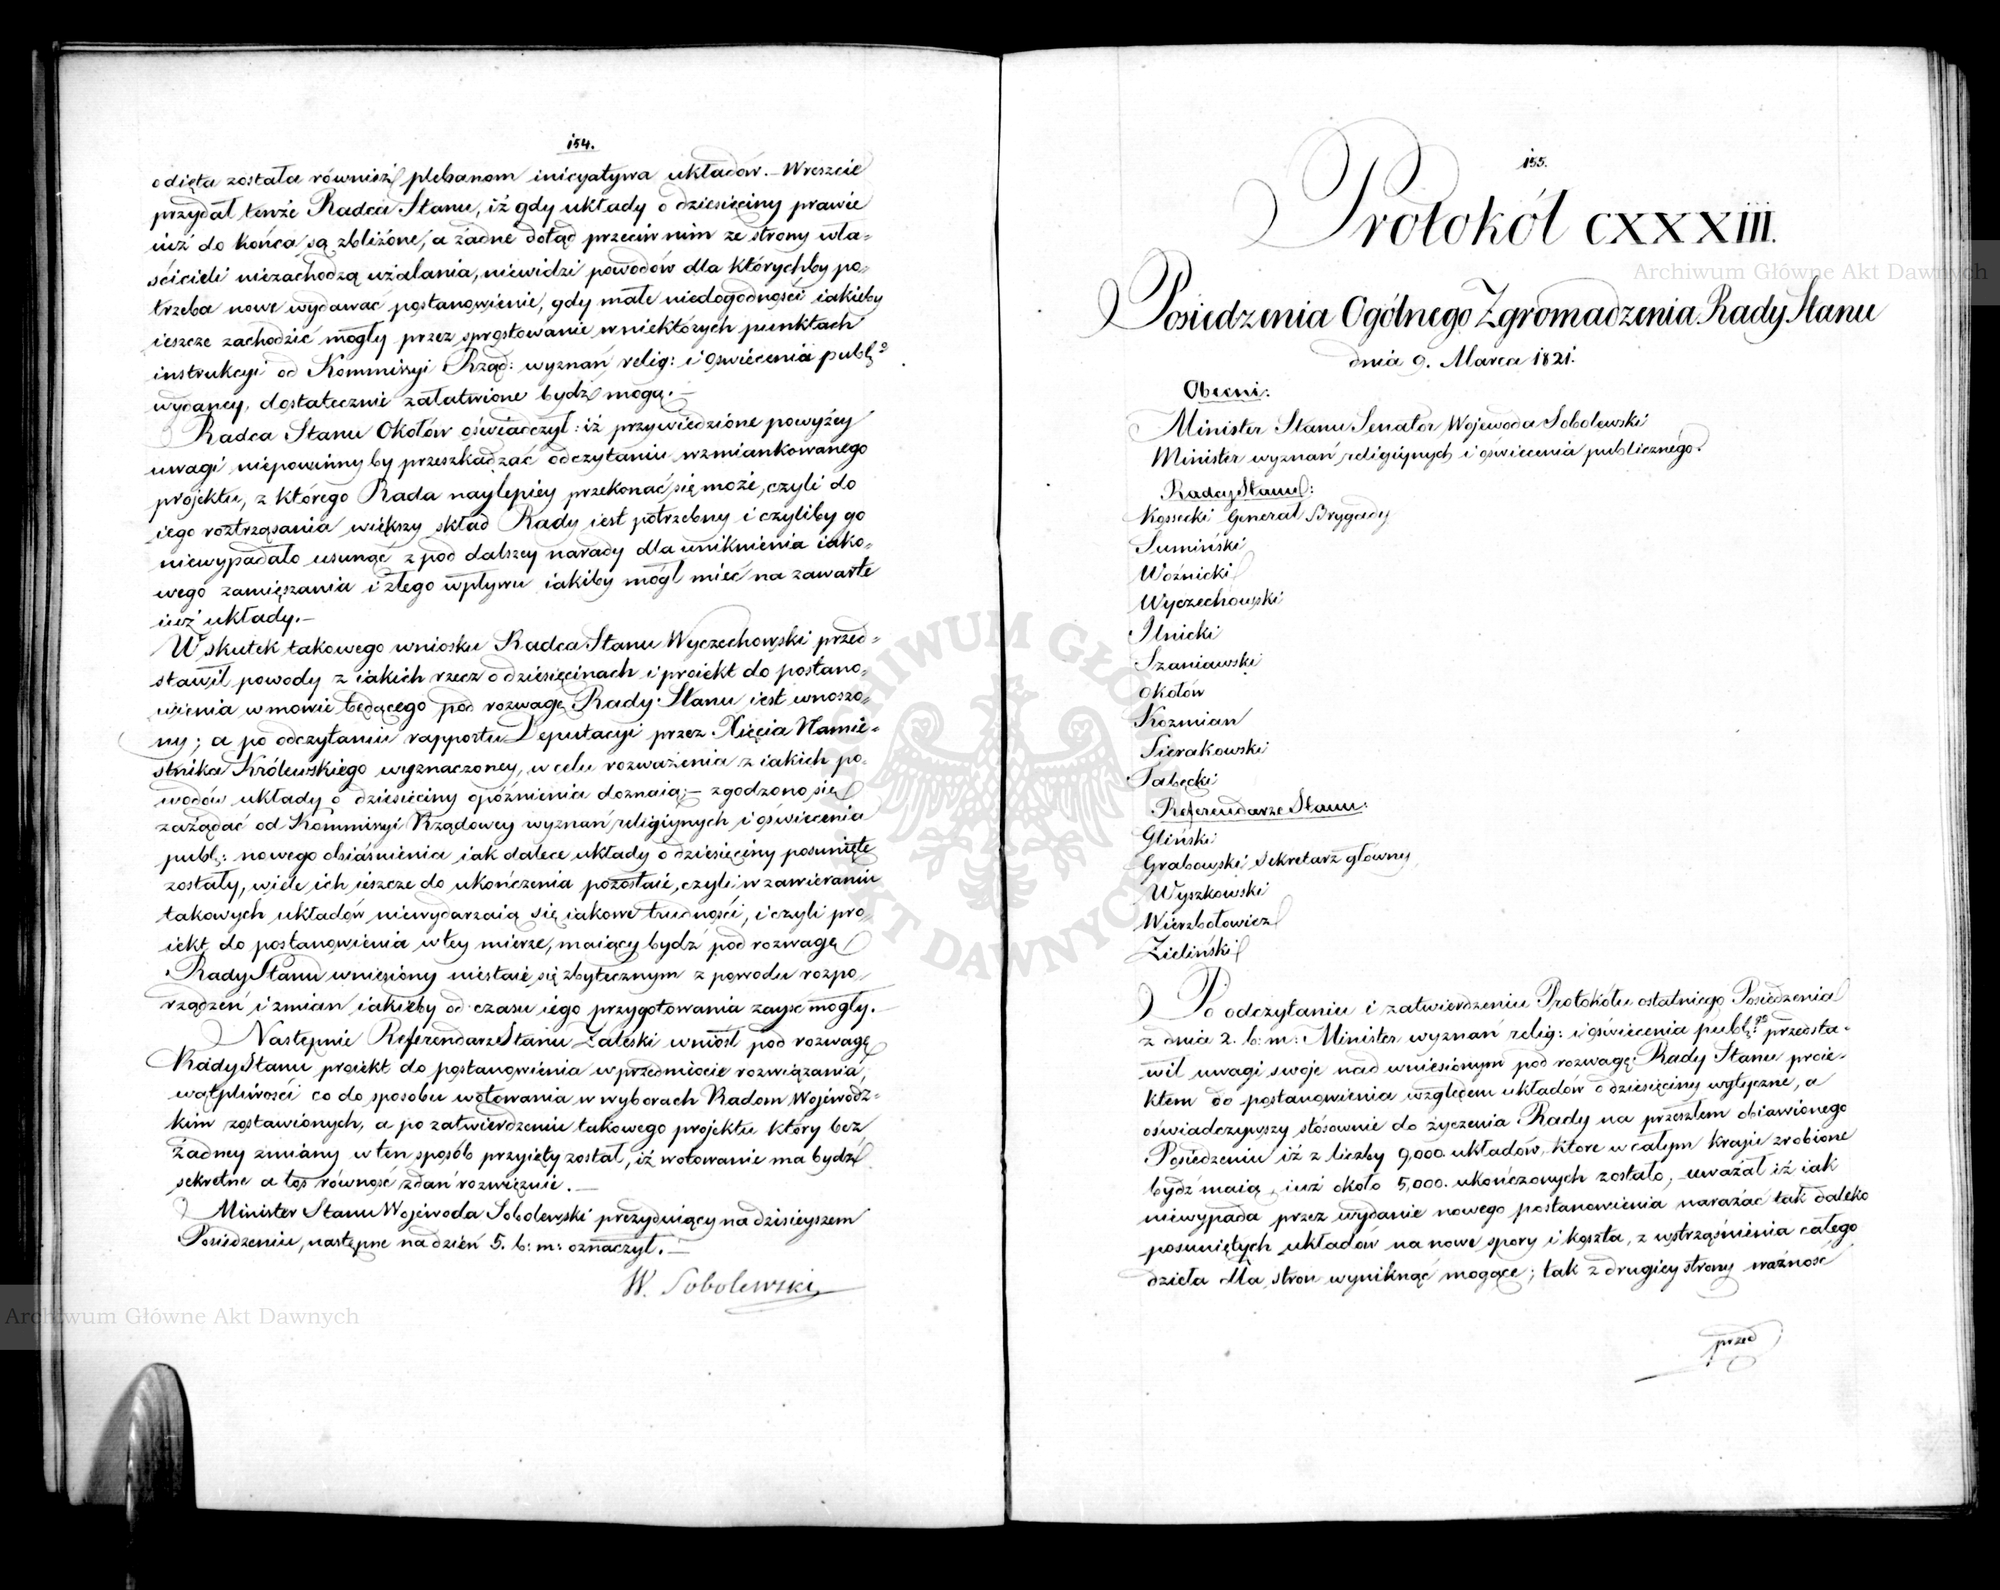 154.
odięta została również plebanom inicyatywa układów. – Wreszcie
przydał tenże Radca Stanu, iż gdy układy o dziesięciny prawie
iuż do końca są zbliżone, a żadne dotąd przeciw nim ze strony wła-
ścicieli niezachodzą użalania, niewidzi powodów dla którychby po-
trzeba nowe wydawać postanowienie, gdy małe niedogodności iakieby
ieszcze zachodzić mogły przez sprostowanie w niektórych punktach
instrukcyi od Kommissyi Rząd: wyznań relig: i oświécenia publ:
wydaney, dostatecznie załatwione bydź mogą. –
Radca Stanu Okołów oświadczył: iż przywiedzione powyżéy
uwagi niepowinnyby przeszkadzać odczytaniu wzmiankowanego
projektu, z którego Rada naylepiey przekonać się może, czyli do
iego roztrząsania większy skład Rady iest potrzebny i czyliby go
niewypadało usunąć z pod dalszey narady dla uniknienia iako-
wego zamięszania i złego wpływu iakiby mógł mieć na zawarte
iuż układy. –
W skutek takowego wniosku Radca Stanu Wyczechowski przed-
stawił powody z iakich rzecz o dziesięcinach i proiekt do postano-
wienia w mowie będącego pod rozwagę Rady Stanu iest wnoszo-
ny; a po odczytaniu rapportu Deputacyi przez Xięcia Namie-
stnika Królewskiego wyznaczoney, w celu rozważenia z iakich po-
wodów układy o dziesięciny opóźnienia doznaią; – zgodzono się
zażądać od Kommissyi Rządowey wyznań religiynych i oświecenia
publ: nowego obiaśnienia iak dalece układy o dziesięciny posunięte
zostały, wiele ich ieszcze do ukończenia pozostaie, czyli w zawieraniu
takowych układów niewydarzaią się iakowe trudności, i czyli pro-
iekt do postanowienia w tey mierze, maiący bydź pod rozwagę
Rady Stanu wniesiony niestaie się zbytecznym z powodu rozpo-
rządzeń i zmian iakieby od czasu iego przygotowania zayść mogły. –
Następnie Referendarz Stanu Zaleski wniósł pod rozwagę
Rady Stanu proiekt do postanowienia w przedmiocie rozwiązania
wątpliwości co do sposobu wotowania w wyborach Radom Wojewódz-
kim zostawionych, a po zatwierdzeniu takowego projektu który bez
żadney zmiany w ten sposób przyięty został, iż wotowanie ma bydź
sekretne a los równość zdań rozwięznie. –
Minister Stanu Wojewoda Sobolewski prezyduiący na dzisieyszem
Posiedzeniu, następne na dzień 5. b: m: oznaczył. –
W. Sobolewski
155.
Protokół CXXXIII.
Posiedzenia Ogólnego Zgromadzenia Rady Stanu
dnia 9. Marca 1821.
Obecni:
Minister Stanu Senator Wojewoda Sobolewski
Minister wyznań religiynych i oświecenia publicznego.
Radcy Stanu:
Kossecki Generał Brygady
Sumiński
Woźnicki
Wyczechowski
Ilnicki
Szaniawski
Okołów
Kozmian
Sierakowski
Tabęcki
Referendarze Stanu:
Gliński
Grabowski Sekretarz główny
Wyszkowski
Wierzbołowicz
Zieliński
Po odczytaniu i zatwierdzeniu Protokółu ostatniego Posiedzenia
z dnia 2. b: m: Minister wyznań relig: i oświecenia publ:go przedsta-
wił uwagi swoje nad wniesionym pod rozwagę Rady Stanu proie-
ktem do postanowienia względem układów o dziesięciny wytyczne, a
oświadczywszy stósownie do życzenia Rady na przeszłem obiawionego
Posiedzeniu iż z liczby 9,000. układów, które w całym kraju zrobione
bydź maią, iuż około 5,000. ukończonych zostało, uważał iż iak
niewypada przez wydanie nowego postanowienia narażać tak daleko
posuniętych układów na nowe spory i koszta, z wstrząśnienia całego
dzieła dla stron wyniknąć mogące; tak z drugiey strony ważność
przed
Archiwum Główne Akt Dawnych
Archiwum Główne Akt Dawnych
ARCHIWUM GŁÓWNE AKT DAWNYCH